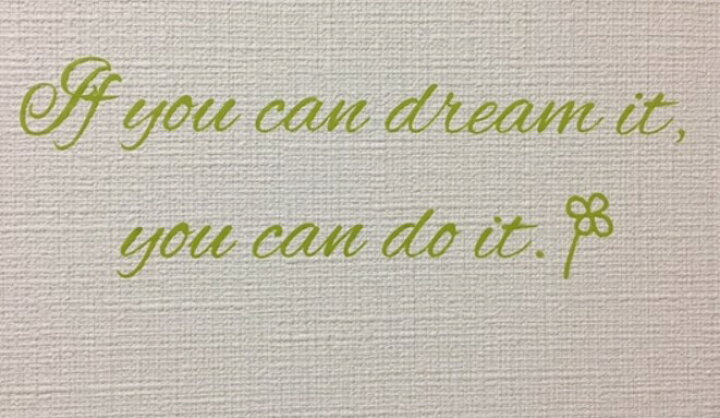 If you can dream it,
you can do it.